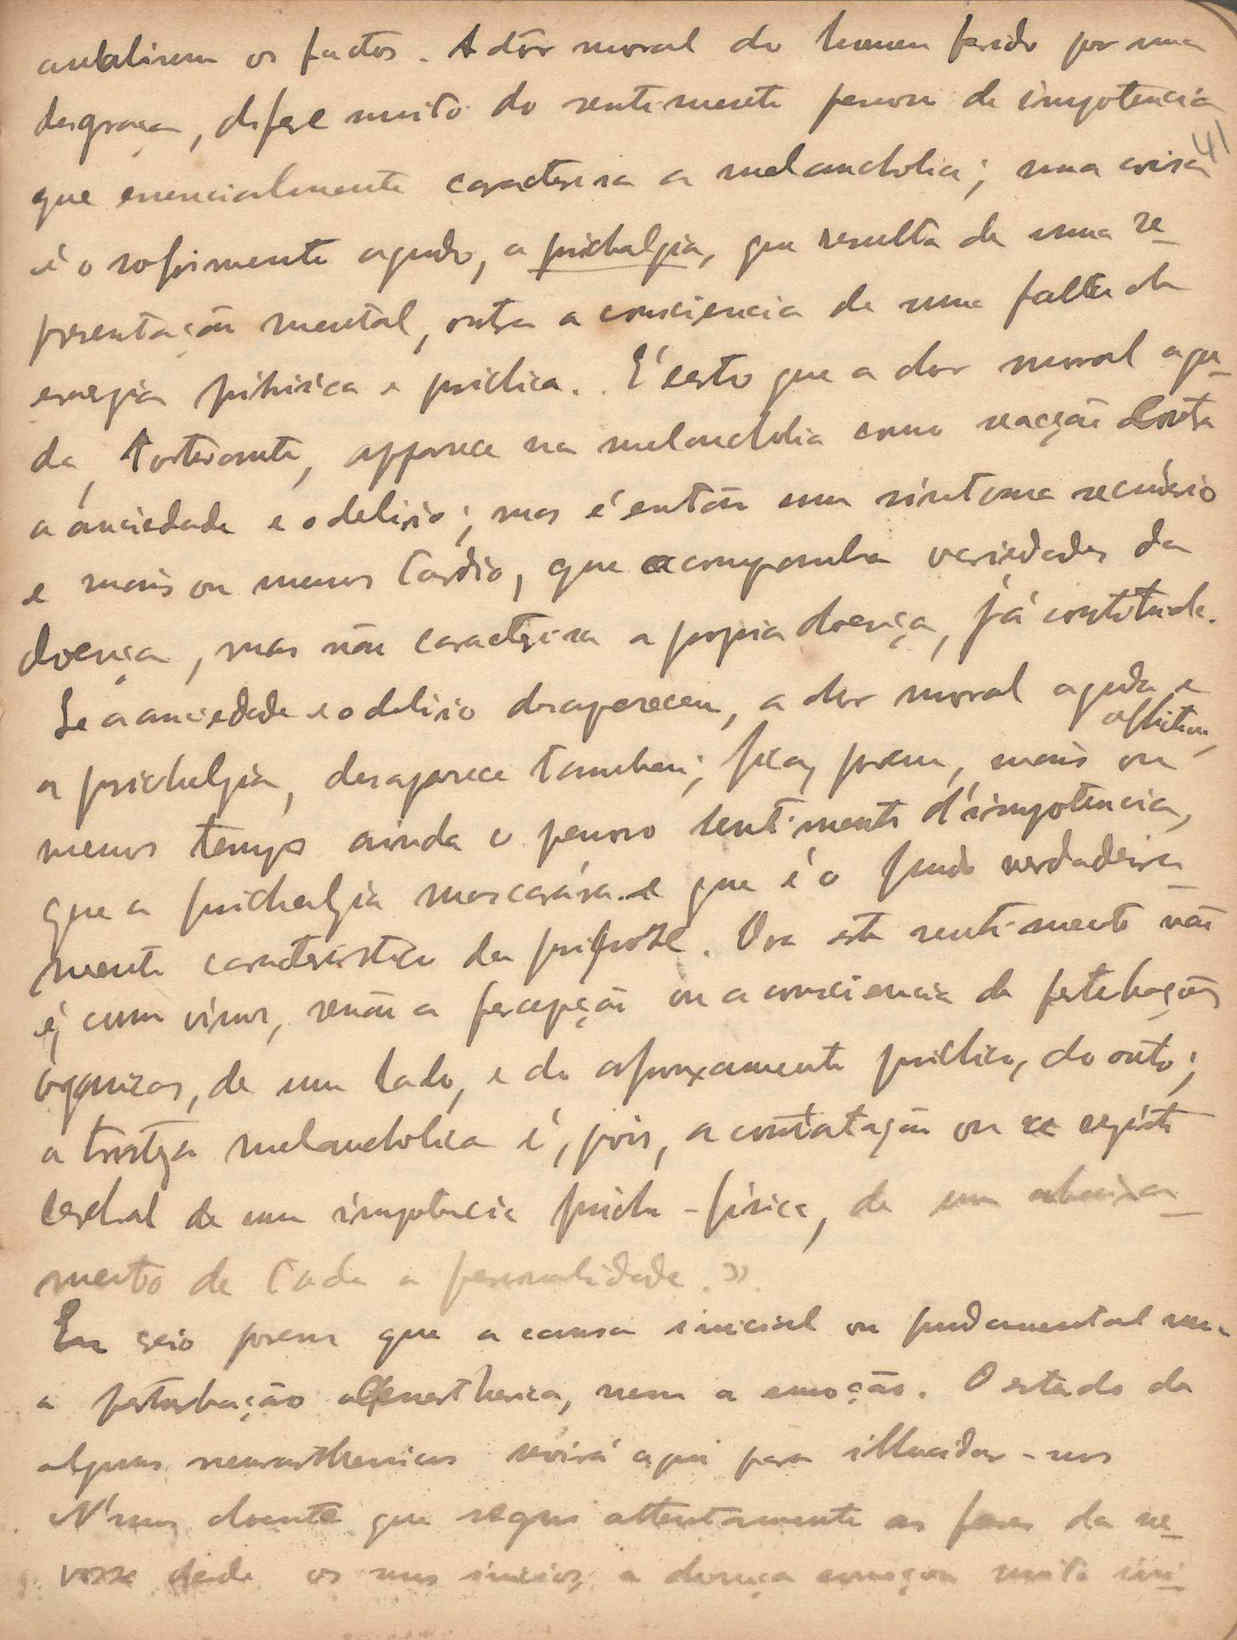 analisem os factos. A dôr moral do homem ferido por uma
desgraça, difere muito do sentimento penoso de impotencia
41
que essencialmente caracterisa a melancholia; uma coisa
é o sofrimento agudo, a psichalgia, que resulta de uma re-
presentação mental, outra a consciencia de uma falta de
energia phisica e psichica. É certo que a dor moral agu-
da, torturante, apparece na melancholia como reacção contra
a anciedade e o delirio; mas é então um sintoma secundario
e mais ou menos tardio, que acompanha variedades da
doença, mas não caracterisa a propria doença, já constituida.
Se a anciedade e o delirio desaparecem, a dor moral aguda e
afflitiva,
a psichalgia, desaparece tambem; fica, porem, mais ou
menos tempo ainda o penoso sentimento d'impotencia,
que a psichalgia mascarára e que é o fundo verdadeira-
mente caracteristico da psichose. Ora este sentimento não
é, como vimos, senão a percepção ou a consciencia de perturbações
organicas, de um lado, e do afrouxamento psichico, do outro;
a tristeza melancholica é, pois, a constatação ou re registo
cerebral de uma impotencia psicho-fisica, de um abaixa-
mento de toda a personalidade.»
Eu creio porem que a causa inicial ou fundamental nem
a perturbação cenesthesica, nem a emoção. O estado de
alguns neurasthenicos servirá aqui para illucidar-nos
N'um doente que segui attentamente as fases da ne-
vrose desde os seus inicios, a doença começou muito ini-